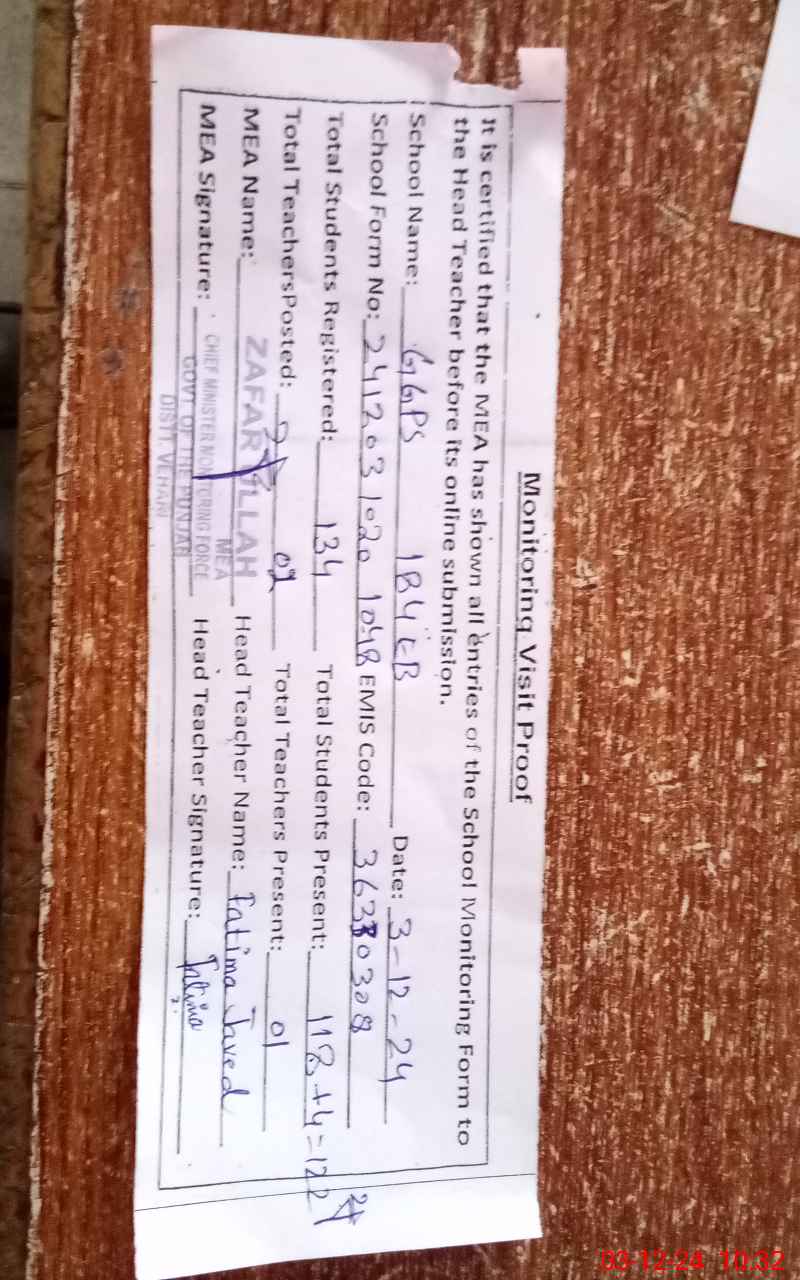 Monitoring Visit Proof
It is certified that the MEA has shown all entries of the School Monitoring Form to
the Head Teacher before its online submission.
School Name: GGPS 184 EB Date: 3-12-24
School Form No: 241203 1020 1048 EMIS Code: 36330308
Total Students Registered: 134 Total Students Present: 118+4=122
Total TeachersPosted: 02 Total Teachers Present: 01
MEA Name: ZAFAR ULLAH Head Teacher Name: Fatima Javed
MEA
MEA Signature: CHIEF MINISTER MONITORING FORCE Head Teacher Signature: Fatima
GOVT OF THE PUNJAB
DISTT. VEHARI
03-12-24 10:32